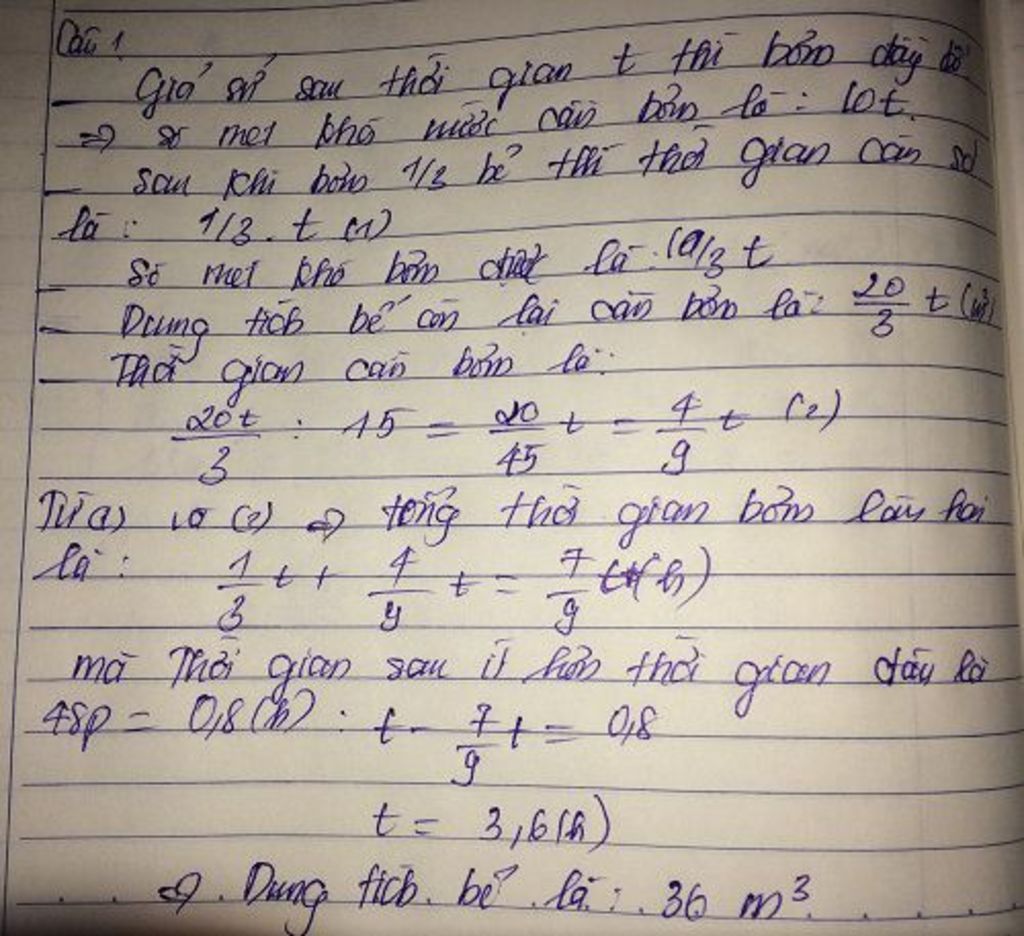 Câu 1
- Giả sử sau thời gian t thì bơm đầy bể
=> số mét khối nước cần bơm là: 10t.
- Sau khi bơm 1/3 bể thì thời gian cần
là: 1/3. t (1)
- Số mét khối bơm được là: 10/3 t
- Dung tích bể còn lại cần bơm là: 20/3 t (m³)
- Thời gian cần bơm là:
20t/3 : 15 = 20/45 t = 4/9 t (2)
Từ (1) và (2) => tổng thời gian bơm lần hai
là: 1/3 t + 4/9 t = 7/9 t (h)
mà Thời gian sau ít hơn thời gian đầu là
48p = 0,8(h): t - 7/9 t = 0,8
t = 3,6(h)
=> Dung tích bể là: 36 m³